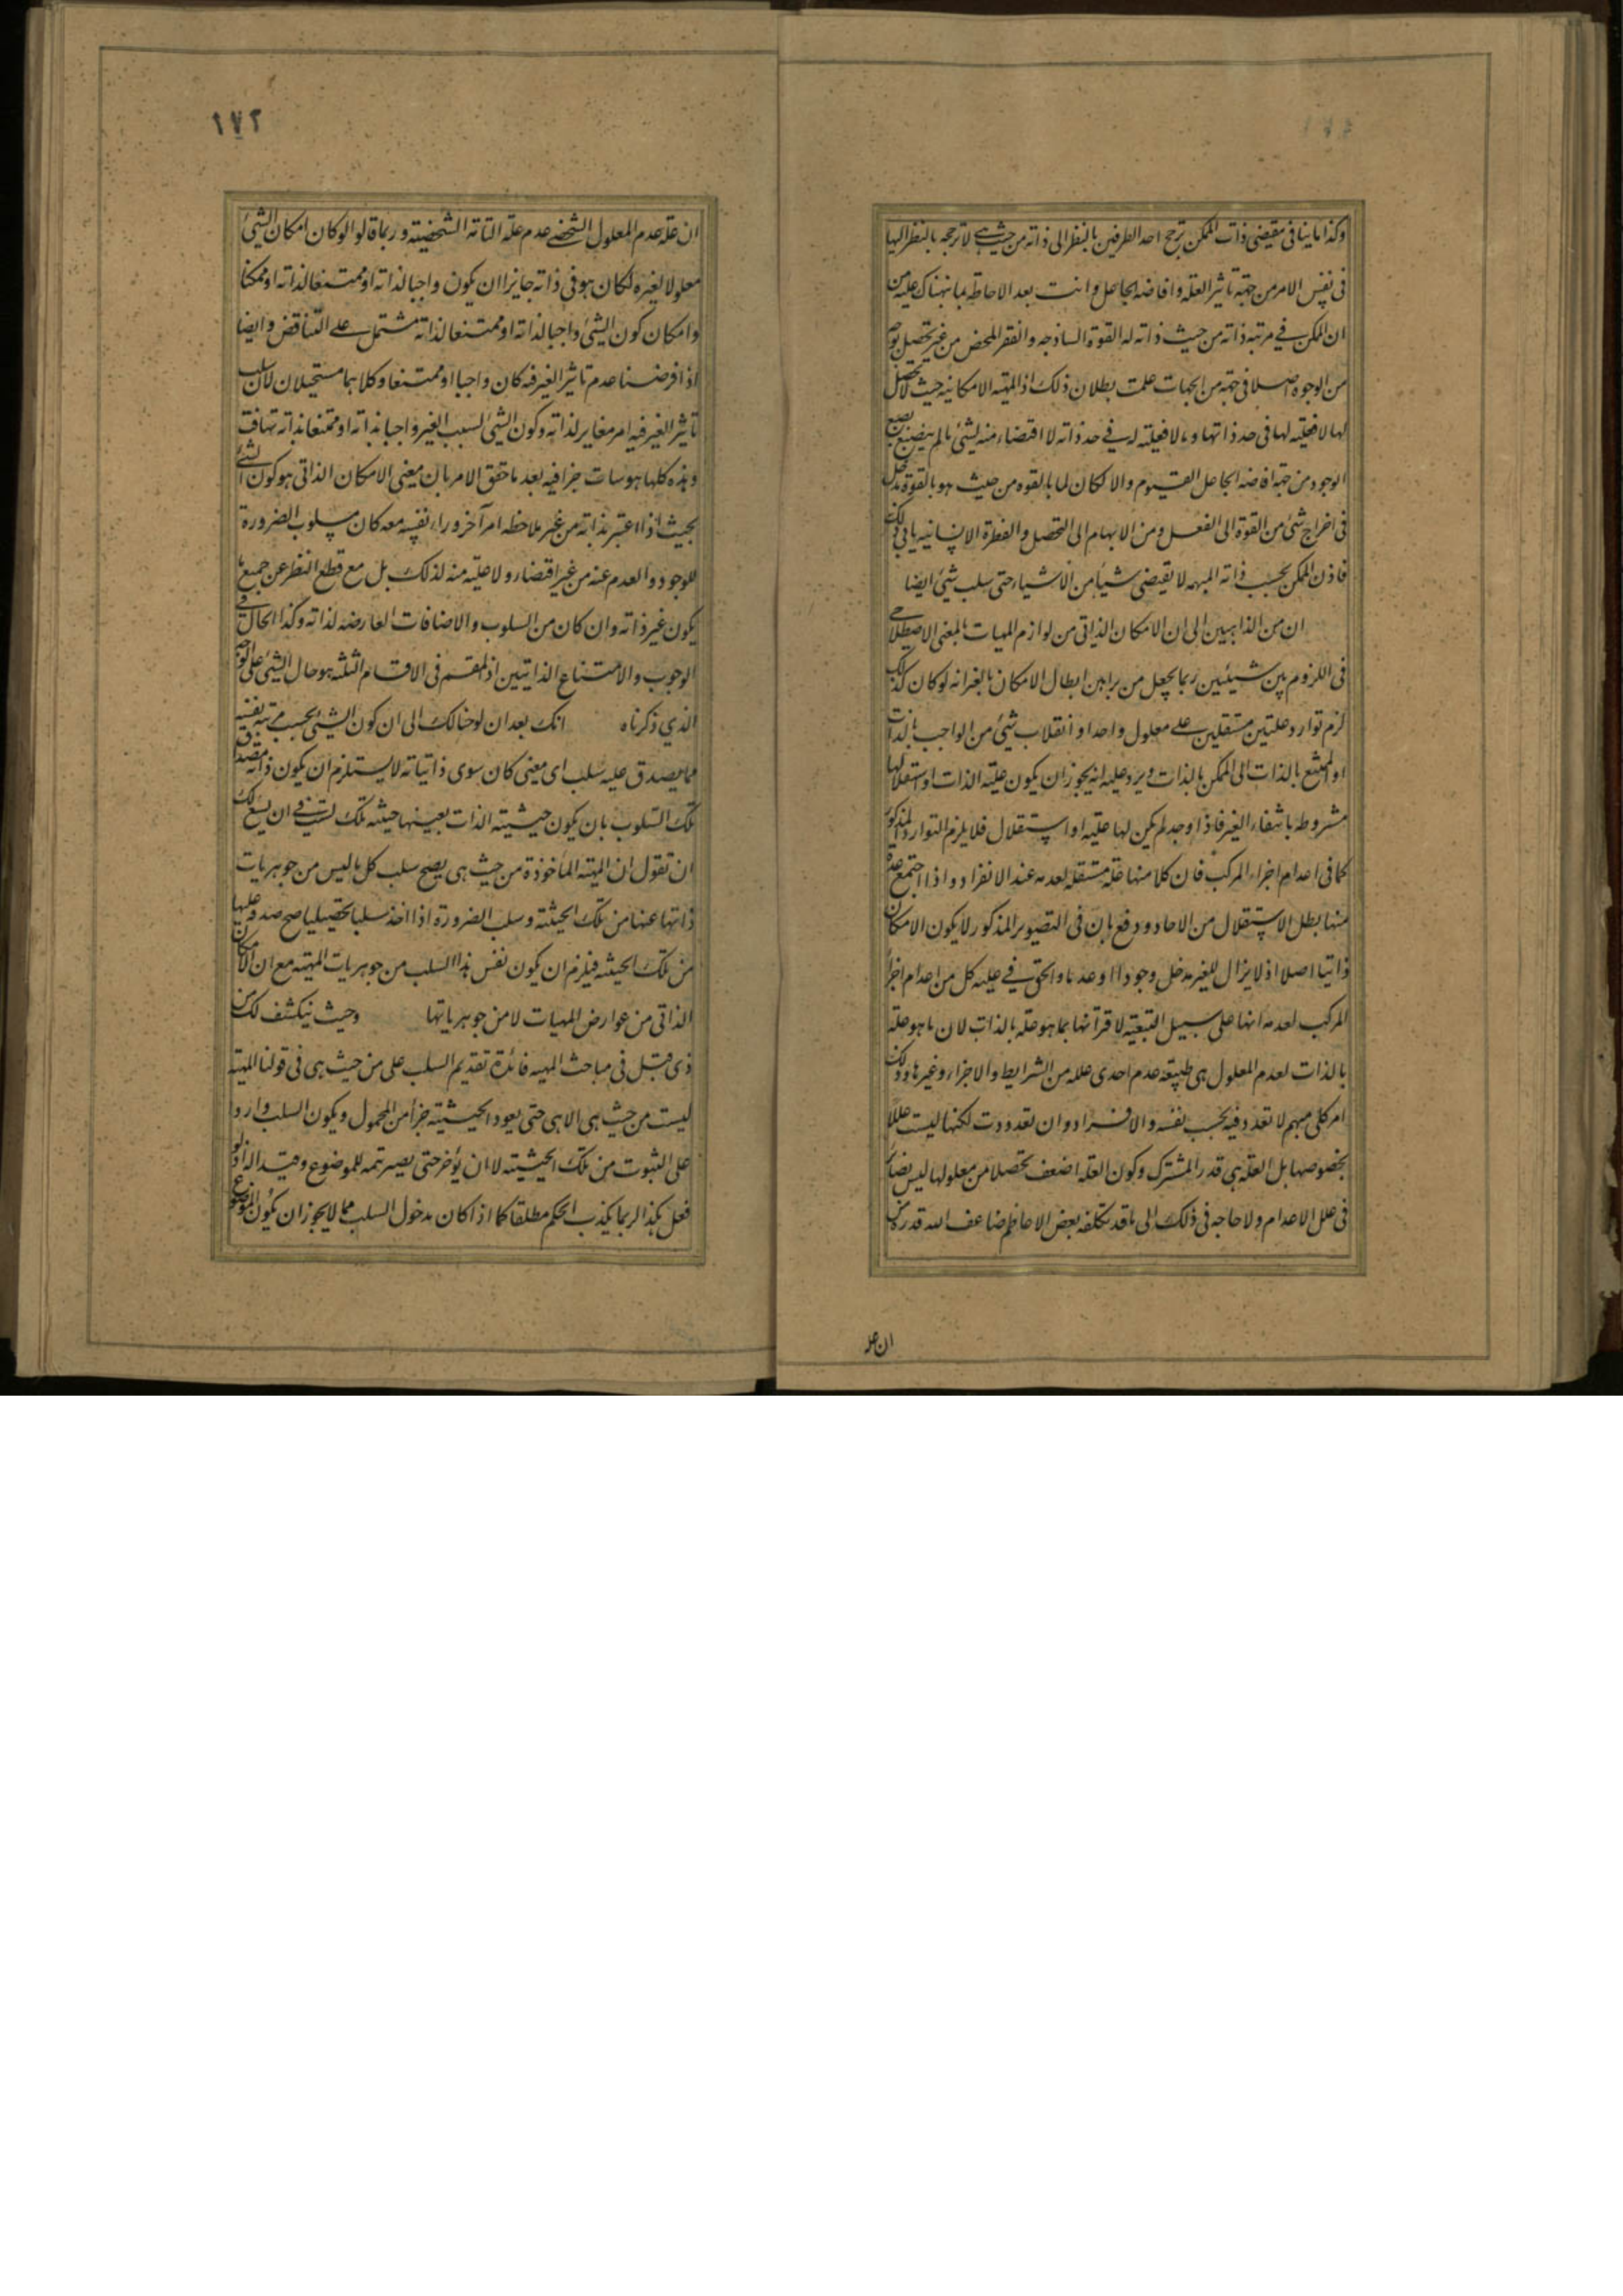 وكذا ما ينافى مقيضى ذات الممكن ترجح احد الطرفين بالنظر الى ذاته من حيث هى لا ترجحه بالنظر اليها
فى نفس الامر من جهة تاثير العلة وافاضة الجاعل وانت بعد الاحاطه بما نبهناك عليه من
ان الممكن فى مرتبه ذاته من حيث ذاته له القوة الساذجه والفقر المحض من غير تحصل بوجه
من الوجوه اصلا فى جهة من الجهات علمت بطلان ذلك اذ المهية الامكانيه حيث لا تحصل
لها لا فعلية لها فى حد ذاتها وما لا فعلية له فى حد ذاته لا اقتضاء منه لشئ ما لم ينصبغ بصبغ
الوجود من جهة افاضه الجاعل القيوم والا لكان لما بالقوه من حيث هو بالقوة مدخل
فى اخراج شئ من القوة الى الفعل ومن الابهام الى التحصل والفطرة الانسانيه يابى ذلك
فاذن الممكن بحسب ذاته المبهمه لا يقيضى شيأ من الاشياء حتى سلب شئ ايضا
ان من الذاهبين الى ان الامكان الذاتى من لوازم المهيات بالمعنى الاصطلاحى
فى اللزوم بين شيئين ربما يجعل من براهين ابطال الامكان بالغير انه لو كان كذلك
لزم توارد علتين مستقلين على معلول واحد او انقلاب شئ من الواجب بالذات
او الممتنع بالذات الى الممكن بالذات ويرد عليه انه يجوز ان يكون علية الذات او استقلالها
مشروطه بانتفاء الغير فاذا وجد لم يكن لها علية او استقلال فلا يلزم التوارد المذكور
كما فى اعدام اجزاء المركب فان كلا منها علة مستقله لعدمه عند الانفراد واذا اجتمع عدة
منها بطل الاستقلال من الاحاد ودفع بان فى التصوير المذكور لا يكون الامكان
ذاتيا اصلا اذ لا يزال للغير مدخل وجودا او عدما والحق فى علية كل من اعدام اجزا
المركب لعدمه انها على سبيل التبعية لاقترانها بما هو علة بالذات لان ما هو علة
بالذات لعدم المعلول هى طبيعة عدم احدى علله من الشرايط والاجزاء وغيرها وذلك
امر كلى مبهم لا تعدد فيه بحسب نفسه والافراد وان تعددت لكنها ليست عللا
بخصوصها بل العلة هى قدر المشترك وكون العلة اضعف تحصلا من معلولها ليس بضائر
فى علل الاعدام ولا حاجه فى ذلك الى ما قد تكلفه بعض الاعاظم ضاعف الله قدره من
ان عله
١٧٢
ان علة عدم المعلول الشخصى عدم علته التامة الشخصية وربما قالوا لو كان امكان الشئ
معلولا لغيره لكان هو فى ذاته جايزا ان يكون واجبا لذاته او ممتنعا لذاته او ممكنا
وامكان كون الشئ واجبا لذاته او ممتنعا لذاته مشتمل على التناقض وايضا
اذا فرضنا عدم تاثير الغير فيه كان واجبا او ممتنعا وكلاهما مستحيلان لان سلب
تاثير الغير فيه امر مغاير لذاته وكون الشئ لسبب الغير واجبا بذاته او ممتنعا بذاته تهافت
وهذه كلها هوسات جزافيه بعد ما حقق الامر بان معنى الامكان الذاتى هو كون الشئ
بحيث اذا اعتبر بذاته من غير ملاحظه امر آخر وراء نفسه معه كان مسلوب الضرورة
للوجود والعدم عنه من غير اقتضاء ولا علية منه لذلك بل مع قطع النظر عن جميع ما
يكون غير ذاته وان كان من السلوب والاضافات العارضه لذاته وكذا الحال فى
الوجوب والامتناع الذاتيين اذ المقسم فى الاقسام الثلثه هو حال الشئ على الوجه
الذى ذكرناه انك بعد ان لوحنا لك الى ان كون الشئ بحسب مرتبة نفسه
مما يصدق عليه سلب اى معنى كان سوى ذاتياته لا يستلزم ان يكون ذاته مصداق
تلك السلوب بان يكون حيثية الذات بعينها حيثية تلك لست فى ان يسع لك
ان تقول ان المهية المأخوذة من حيث هى يصح سلب كل ما ليس من جوهريات
ذاتها عنها من تلك الحيثية وسلب الضرورة اذا اخذ سلبا تحصيليا صح صدقه عليها
من تلك الحيثيه فيلزم ان يكون نفس هذا السلب من جوهريات المهية مع ان الامكان
الذاتى من عوارض المهيات لا من جوهرياتها وحيث ينكشف لك من
ذى قبل فى مباحث المهيه فائدة تقديم السلب على من حيث هى فى قولنا المهية
ليست من حيث هى الا هى حتى يعود الحيثية جزأ من المحمول ويكون السلب واردا
على الثبوت من تلك الحيثية لا ان يؤخر حتى يصير تتمه للموضوع وقيدا له اذ لو
فعل هكذا لربما يكذب الحكم مطلقا كما اذا كان مدخول السلب مما لا يجوز ان يكون الموضوع